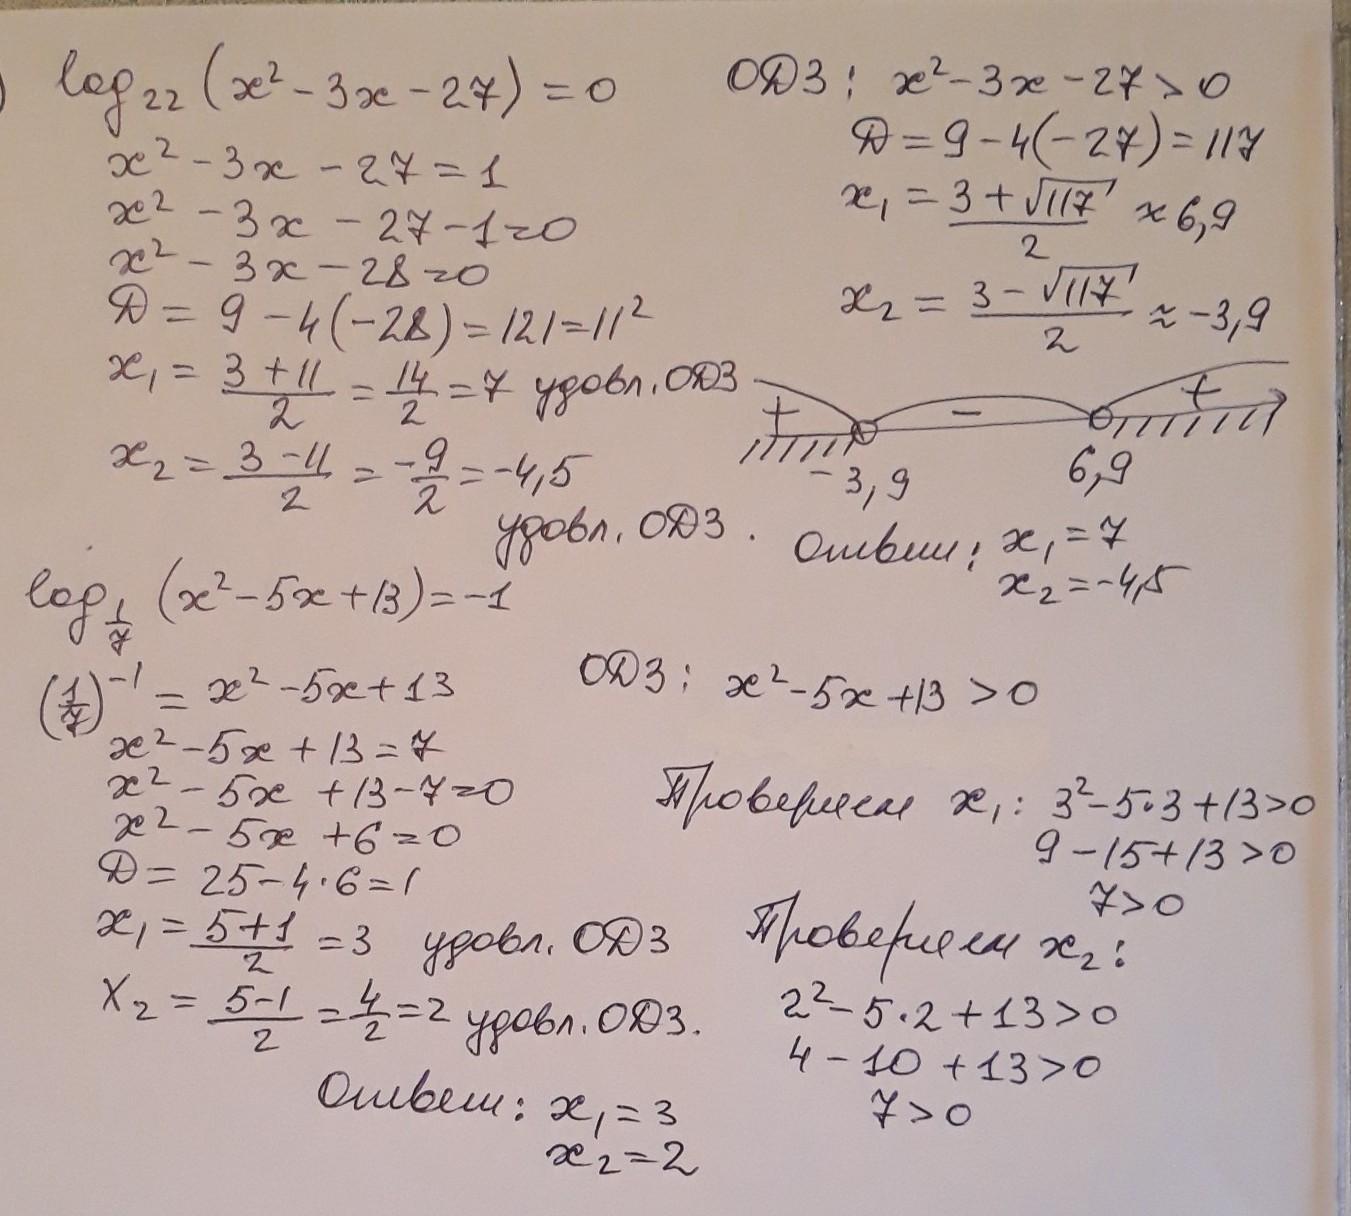 ) log₂₂ (x² - 3x - 27) = 0
x² - 3x - 27 = 1
x² - 3x - 27 - 1 = 0
x² - 3x - 28 = 0
Д = 9 - 4(-28) = 121 = 11²
x₁ = (3 + 11)/2 = 14/2 = 7 удовл. ОДЗ
x₂ = (3 - 11)/2 = -9/2 = -4,5
удовл. ОДЗ.
ОДЗ: x² - 3x - 27 > 0
Д = 9 - 4(-27) = 117
x₁ = (3 + √117)/2 ≈ 6,9
x₂ = (3 - √117)/2 ≈ -3,9
+ - +
-3,9 6,9
Ответ: x₁ = 7
x₂ = -4,5
log_{1/7} (x² - 5x + 13) = -1
(1/7)⁻¹ = x² - 5x + 13
x² - 5x + 13 = 7
x² - 5x + 13 - 7 = 0
x² - 5x + 6 = 0
Д = 25 - 4·6 = 1
x₁ = (5+1)/2 = 3 удовл. ОДЗ
X₂ = (5-1)/2 = 4/2 = 2 удовл. ОДЗ.
ОДЗ: x² - 5x + 13 > 0
Проверяем x₁: 3² - 5·3 + 13 > 0
9 - 15 + 13 > 0
7 > 0
Проверяем x₂:
2² - 5·2 + 13 > 0
4 - 10 + 13 > 0
7 > 0
Ответ: x₁ = 3
x₂ = 2